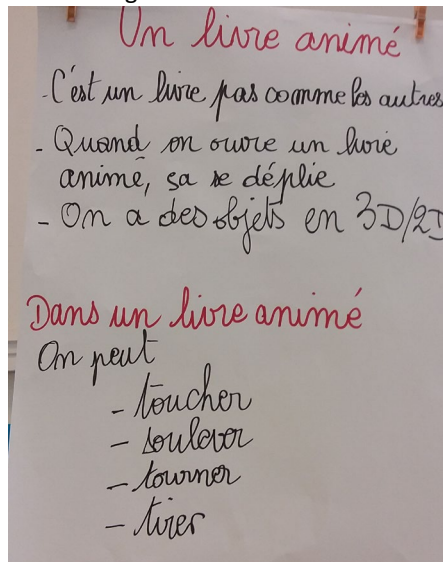 Un livre animé
- C'est un livre pas comme les autres
- Quand on ouvre un livre
animé, sa se déplie
- On a des objets en 3D/2D
Dans un livre animé
On peut
- toucher
- soulever
- tourner
- tirer